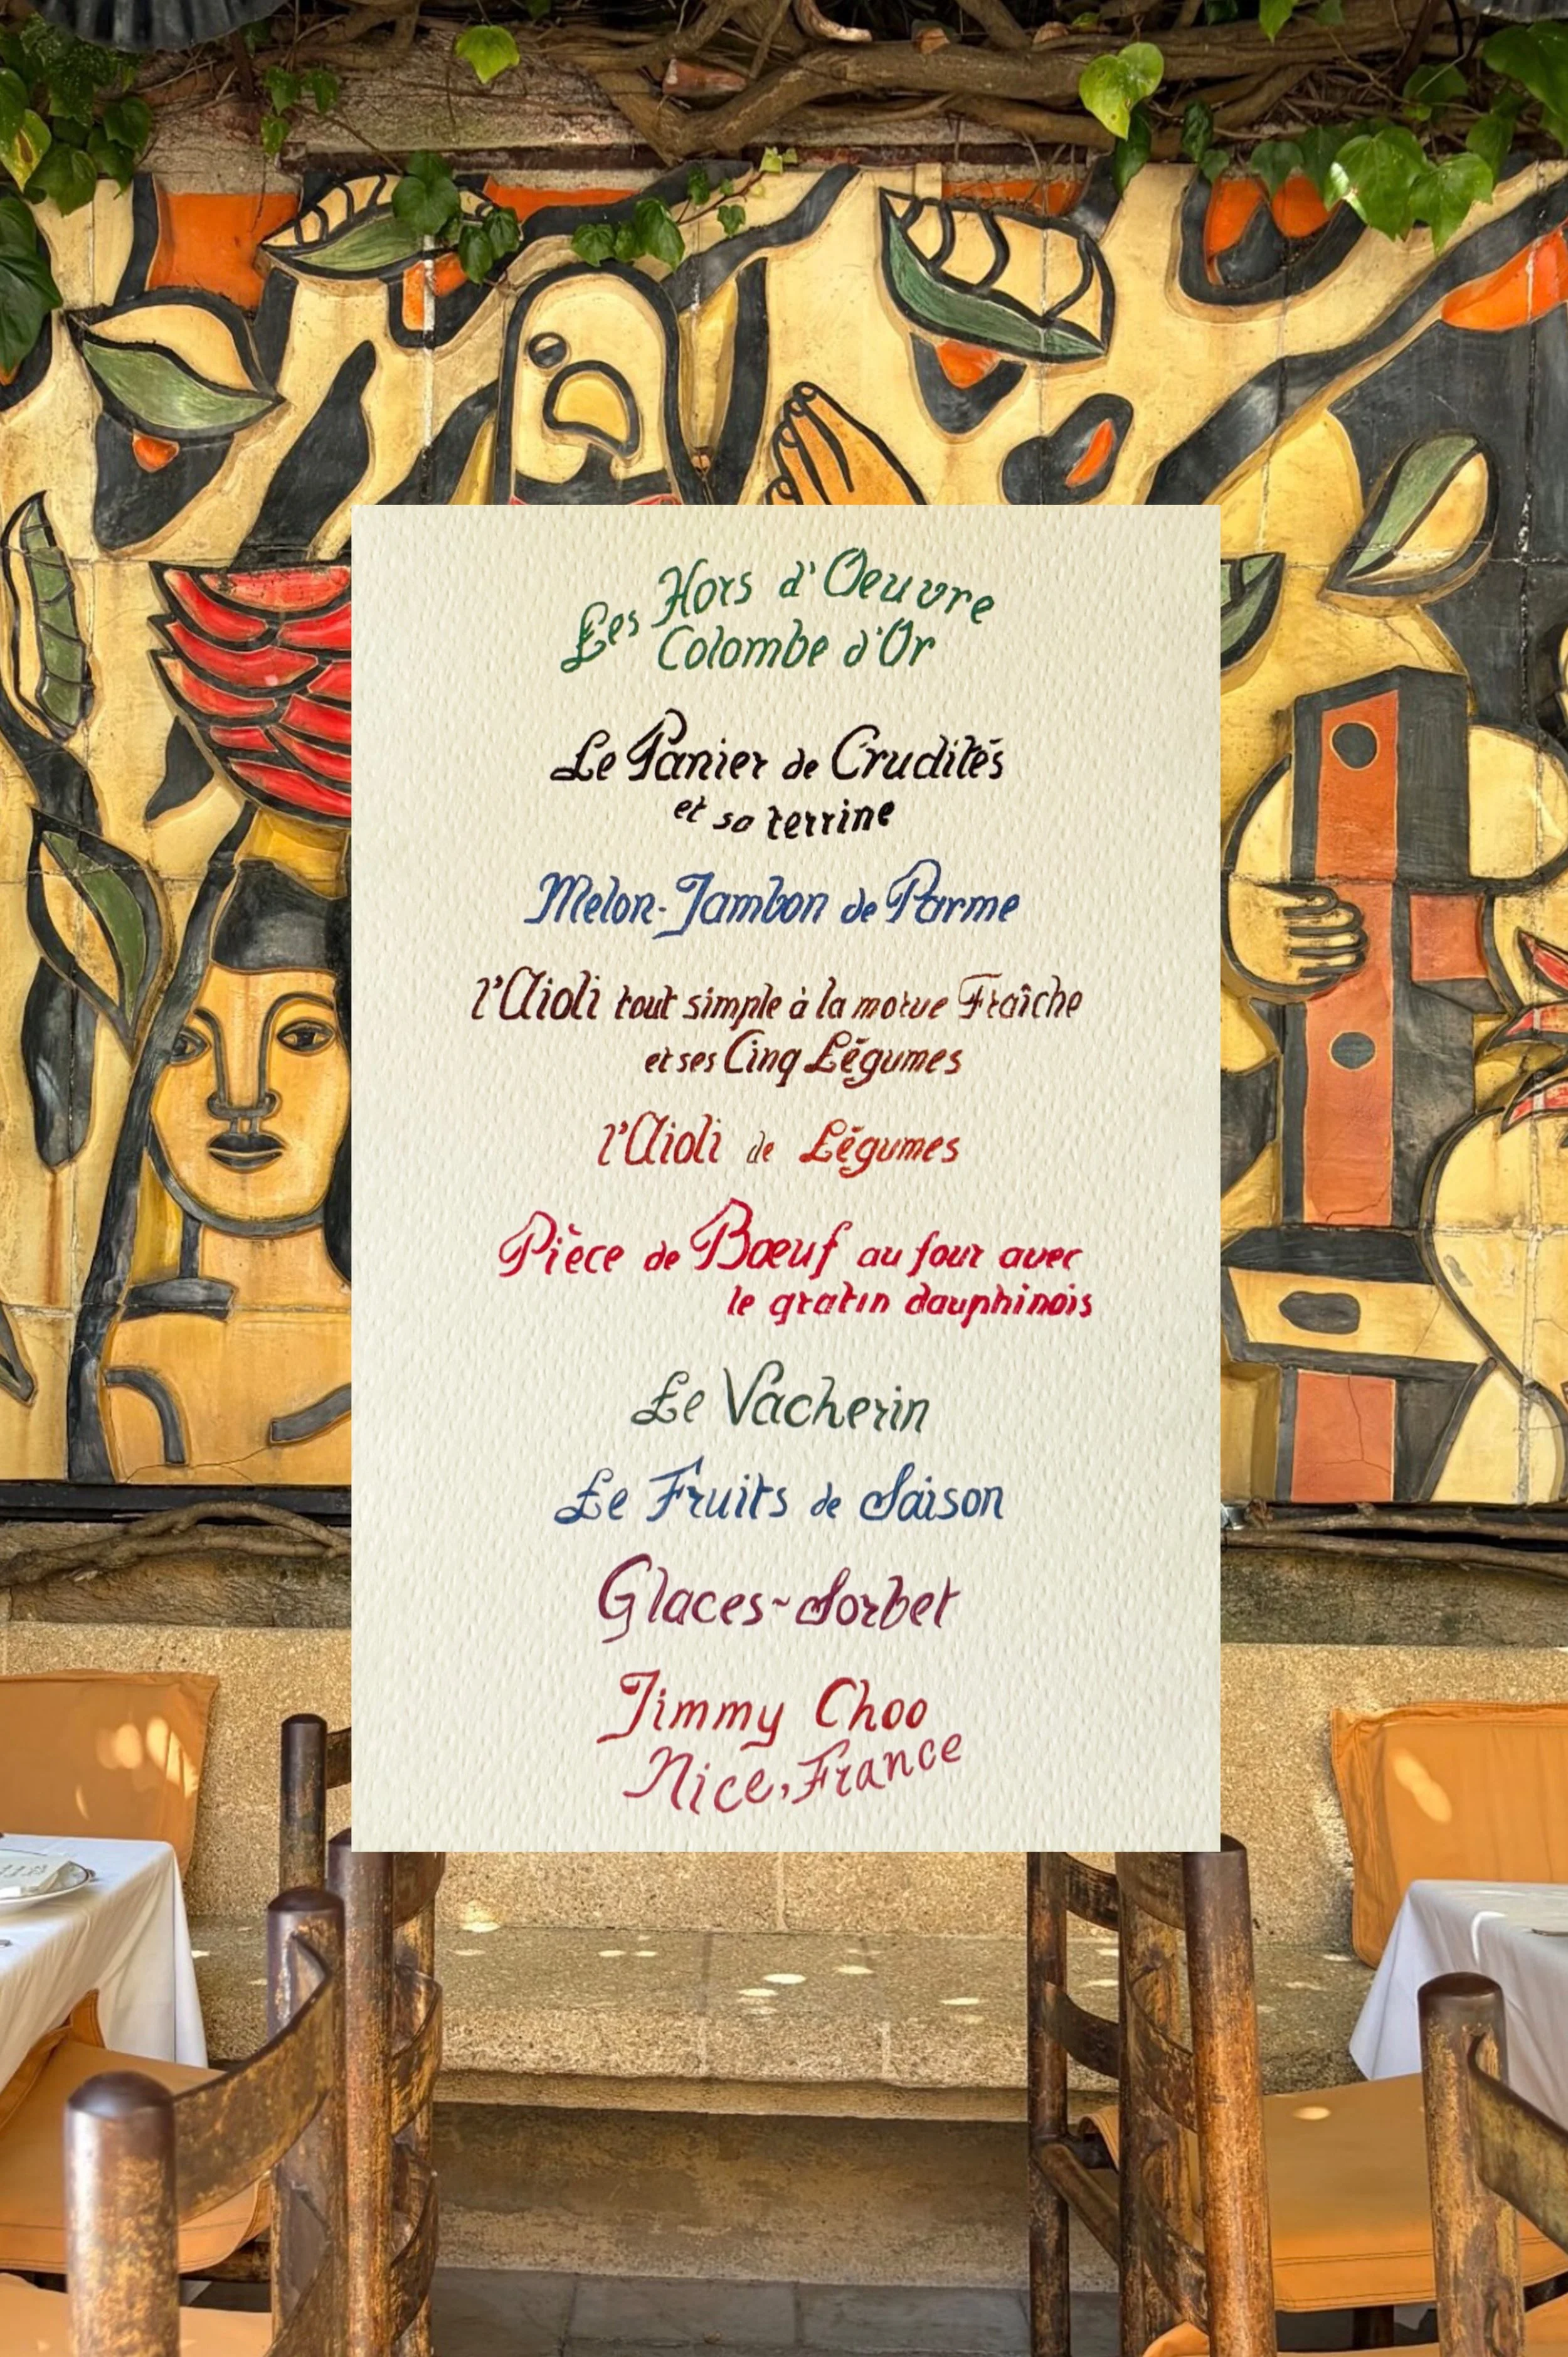 Les Hors d'Oeuvre
Colombe d'Or
Le Panier de Crudités
et sa terrine
Melon-Jambon de Parme
l'Aioli tout simple à la morue Fraîche
et ses Cinq Légumes
l'Aioli de Légumes
Pièce de Bœuf au four avec
le gratin dauphinois
Le Vacherin
Le Fruits de Saison
Glaces~Sorbet
Jimmy Choo
Nice, France